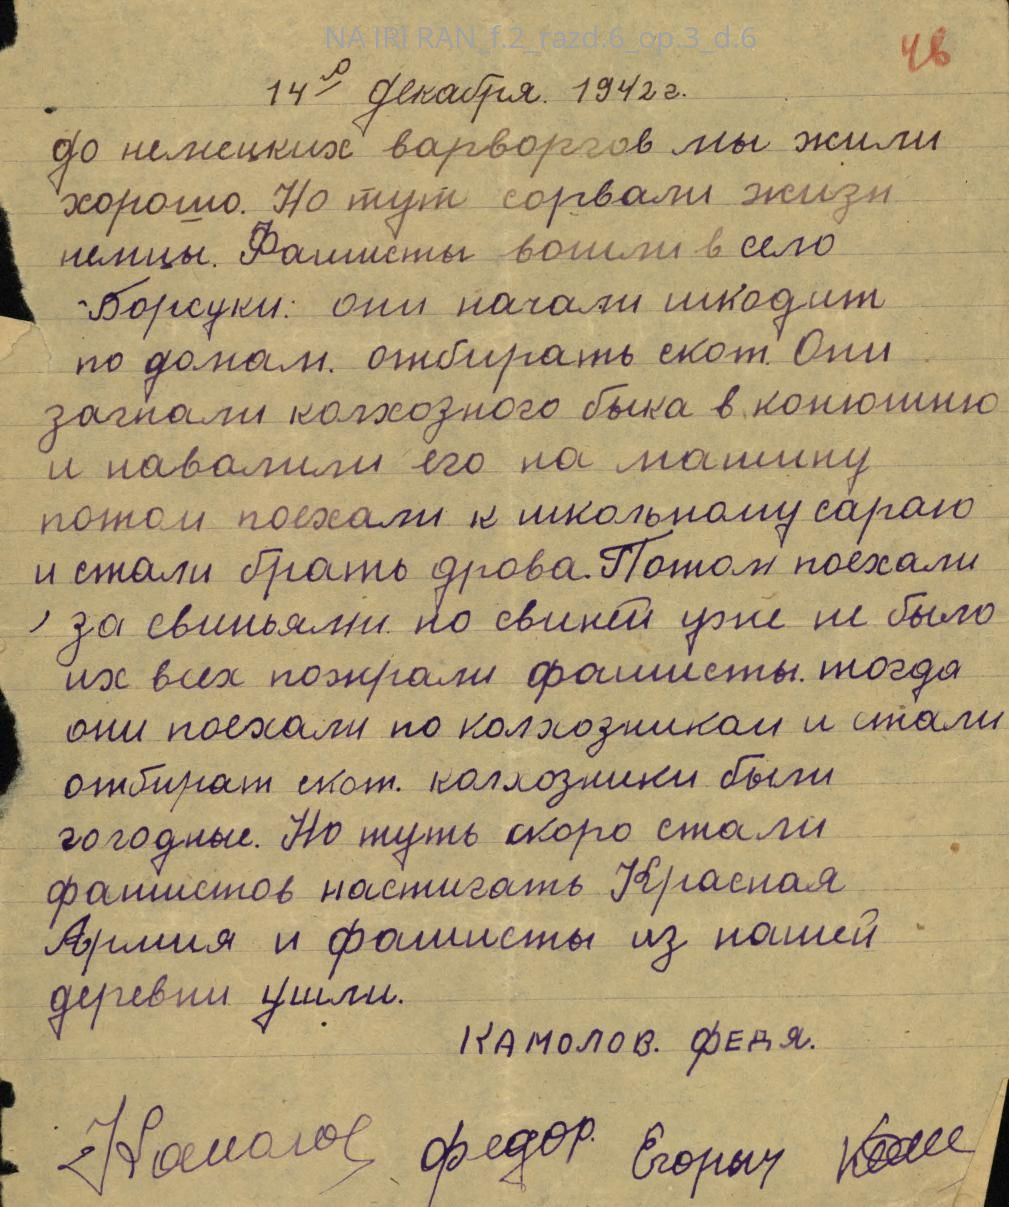 NA IRI RAN_f.2_razd.6_op.3_d.6
46
14го декабря. 1942 г.
до немецких варворгов мы жили
хорошо. Но тут сорвали жизн
немцы. Фашисты вошли в село
Борсуки: они начали шкодит
по домам. отбирать скот. Они
загнали колхозного быка в конюшню
и навалили его на машину
потом поехали к школьному сараю
и стали брать дрова. Потом поехали
за свиньями. но свиней уже не было
их всех пожрали фашисты. тогда
они поехали по колхозникам и стали
отбират скот. колхозники были
гогодные. Но туть скоро стали
фашистов настигать Красная
Армия и фашисты из нашей
деревни ушли.
КАМОЛОВ. ФЕДЯ.
Камолов Федор. Егорыч